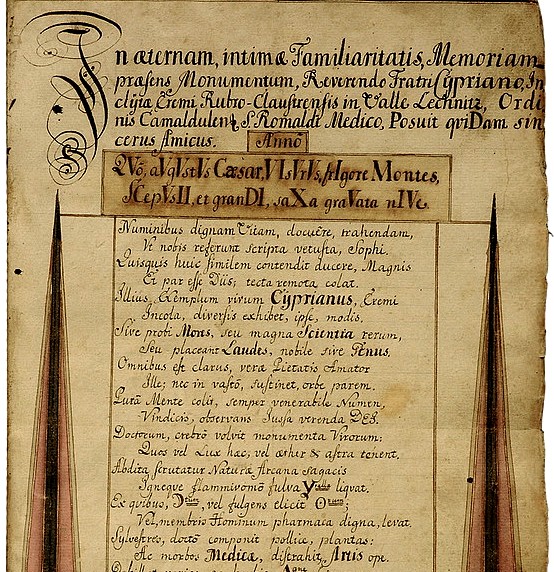 In æternam, intimæ Familiaritatis, Memoriam
præsens Monumentum, Reverendo Fratri Cypriano, In
clyta Eremi Rubro-Claustrensis in Valle Lechnitz, Ordi
nis Camaldulens S. Romaldi Medico, Posuit qviDam sin
cerus Amicus. Annô
QVô, aVgVstVs Cæsar, VIsVrVs, frIgore Montes,
SCepVsII, et granDI, saXa graVata nIVe.
Numinibus dignam Vitam, docuêre, trahendam,
Ut nobis referunt scripta vetusta, Sophi.
Quisquis huic similem contendit ducere, Magnis
Et par esse Diis; tecta remota colat.
Illius, Exemplum vivum Cyprianus, Eremi
Incola, diversis exhibet, ipse, modis.
Sive probi Mores, seu magna Scientia rerum,
Seu placeant Laudes, nobile sive Genus.
Omnibus est clarus, veræ Pietatis Amator
Ille; nec in vastô, sustinet, orbe parem.
Purâ Mente colit, semper venerabile Numen,
Vindicis, observans Jussa verenda DEI.
Doctorum, crebrô volvit monumenta Virorum:
Quos vel Lux hæc, vel æther & astra tenent.
Abdita scrutatur Naturæ Arcana sagacis
Igneque flammivomô fulva liquat.
Ex quibus, vel fulgens elicit
Vel, membris Hominum pharmaca digna, levat.
Sylvestres, doctô componit pollice, plantas:
Ac morbos Medicæ, distrahit, Artis ope.